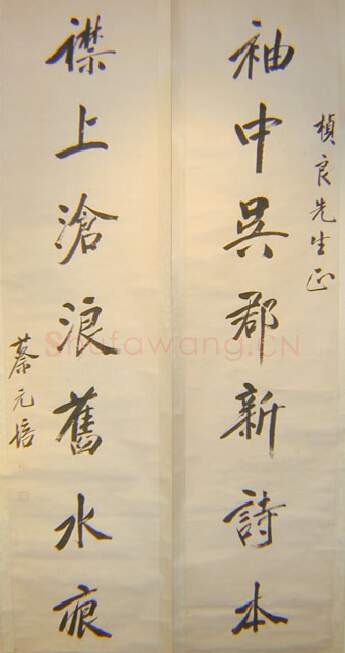 楨良先生正
袖中吳郡新詩本
襟上滄浪舊水痕
蔡元培
Shufawang.CN